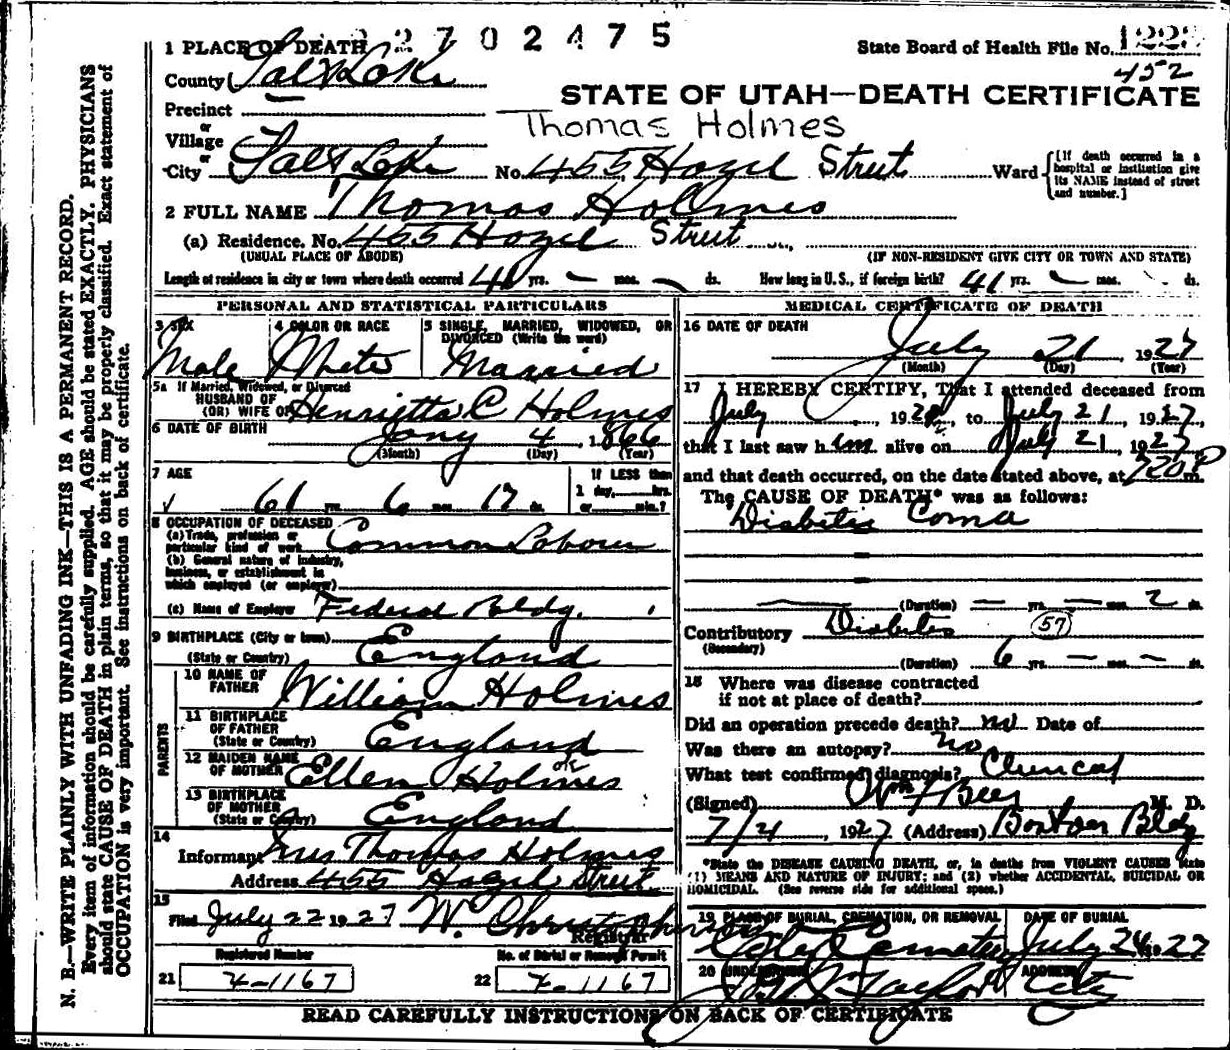 2702475
1 PLACE OF DEATH
State Board of Health File No. 122
County Salt Lake
452
STATE OF UTAH—DEATH CERTIFICATE
Precinct
Thomas Holmes
or
Village
or
City Salt Lake No. 455 Hazel Street Ward [If death occurred in a hospital or institution give its NAME instead of street and number.]
2 FULL NAME Thomas Holmes
(a) Residence. No. 455 Hazel Street
(USUAL PLACE OF ABODE) (IF NON-RESIDENT GIVE CITY OR TOWN AND STATE)
Length of residence in city or town where death occurred 41 yrs. — mos. — ds. How long in U. S., if foreign birth? 41 yrs. — mos. — ds.
PERSONAL AND STATISTICAL PARTICULARS
3 SEX
Male
4 COLOR OR RACE
White
5 SINGLE, MARRIED, WIDOWED, OR DIVORCED (Write the word)
Married
5a If Married, Widowed, or Divorced
HUSBAND OF
(OR) WIFE OF Henrietta C Holmes
6 DATE OF BIRTH Jany 4, 1866
(Month) (Day) (Year)
7 AGE
61 yrs. 6 mos. 17 ds.
If LESS than
1 day, hrs.
or min.?
8 OCCUPATION OF DECEASED
(a) Trade, profession or
particular kind of work Common Laborer
(b) General nature of industry,
business, or establishment in
which employed (or employer)
(c) Name of Employer Federal Bldg.
9 BIRTHPLACE (City or town)
(State or Country) England
PARENTS
10 NAME OF
FATHER William Holmes
11 BIRTHPLACE
OF FATHER
(State or Country) England
12 MAIDEN NAME
OF MOTHER Ellen Holmes ok
13 BIRTHPLACE
OF MOTHER
(State or Country) England
14
Informant Mrs Thomas Holmes
Address 455 Hazel Street
15
Filed July 22 1927 W. Christopherson
Registrar
Registered Number
21 7-1167
No. of Burial or Removal Permit
22 7-1167
MEDICAL CERTIFICATE OF DEATH
16 DATE OF DEATH
July 21, 1927
(Month) (Day) (Year)
17 I HEREBY CERTIFY, That I attended deceased from
July, 192, to July 21, 1927
that I last saw him alive on July 21, 1927
and that death occurred, on the date stated above, at 720 P m.
The CAUSE OF DEATH* was as follows:
Diabetic Coma
(Duration) — yrs. — mos. 2 ds.
Contributory Diabetes 57
(Secondary)
(Duration) 6 yrs. — mos. — ds.
18 Where was disease contracted
if not at place of death?
Did an operation precede death? no Date of
Was there an autopsy? no
What test confirmed diagnosis? Clinical
(Signed) Beer M. D.
7/21, 1927 (Address) Boston Bldg
*State the DISEASE CAUSING DEATH, or, in deaths from VIOLENT CAUSES state
(1) MEANS AND NATURE OF INJURY; and (2) whether ACCIDENTAL, SUICIDAL OR
HOMICIDAL. (See reverse side for additional space.)
19 PLACE OF BURIAL, CREMATION, OR REMOVAL
City Cemetery
DATE OF BURIAL
July 24 1927
20 UNDERTAKER
Taylor
ADDRESS
City
READ CAREFULLY INSTRUCTIONS ON BACK OF CERTIFICATE
N. B.—WRITE PLAINLY WITH UNFADING INK—THIS IS A PERMANENT RECORD.
Every item of information should be carefully supplied. AGE should be stated EXACTLY. PHYSICIANS
should state CAUSE OF DEATH in plain terms, so that it may be properly classified. Exact statement of
OCCUPATION is very important. See instructions on back of certificate.